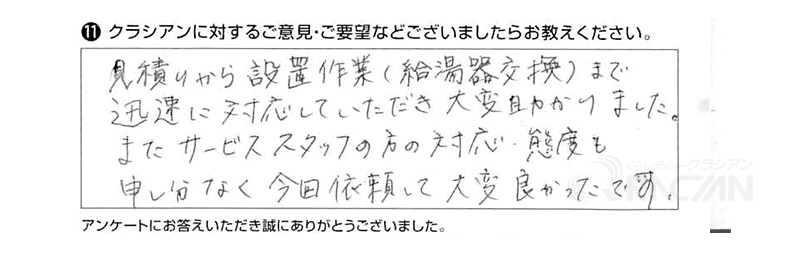 ⓫ クラシアンに対するご意見・ご要望などございましたらお教えください。
見積りから設置作業(給湯器交換)まで
迅速に対応していただき大変助かりました。
またサービススタッフの方の対応・態度も
申し分なく今回依頼して大変良かったです。
くらし安心クラシアン
QRACIAN
アンケートにお答えいただき誠にありがとうございました。